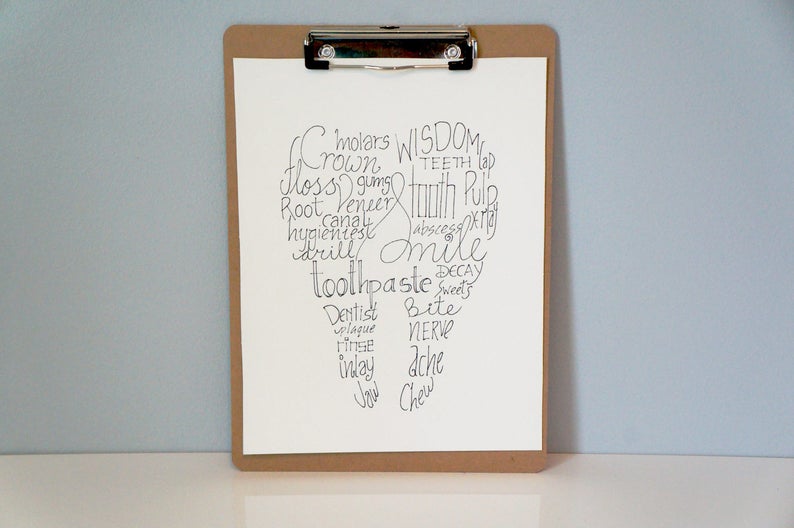 molars
Crown
floss gums
Root Veneer
canal
hygienest
drill
WISDOM
TEETH
tooth Pulp
abscess X-ray
Smile
toothpaste DECAY
Sweets
Dentist
plaque
rinse
inlay
Jaw
Bite
NERVE
ache
Chew